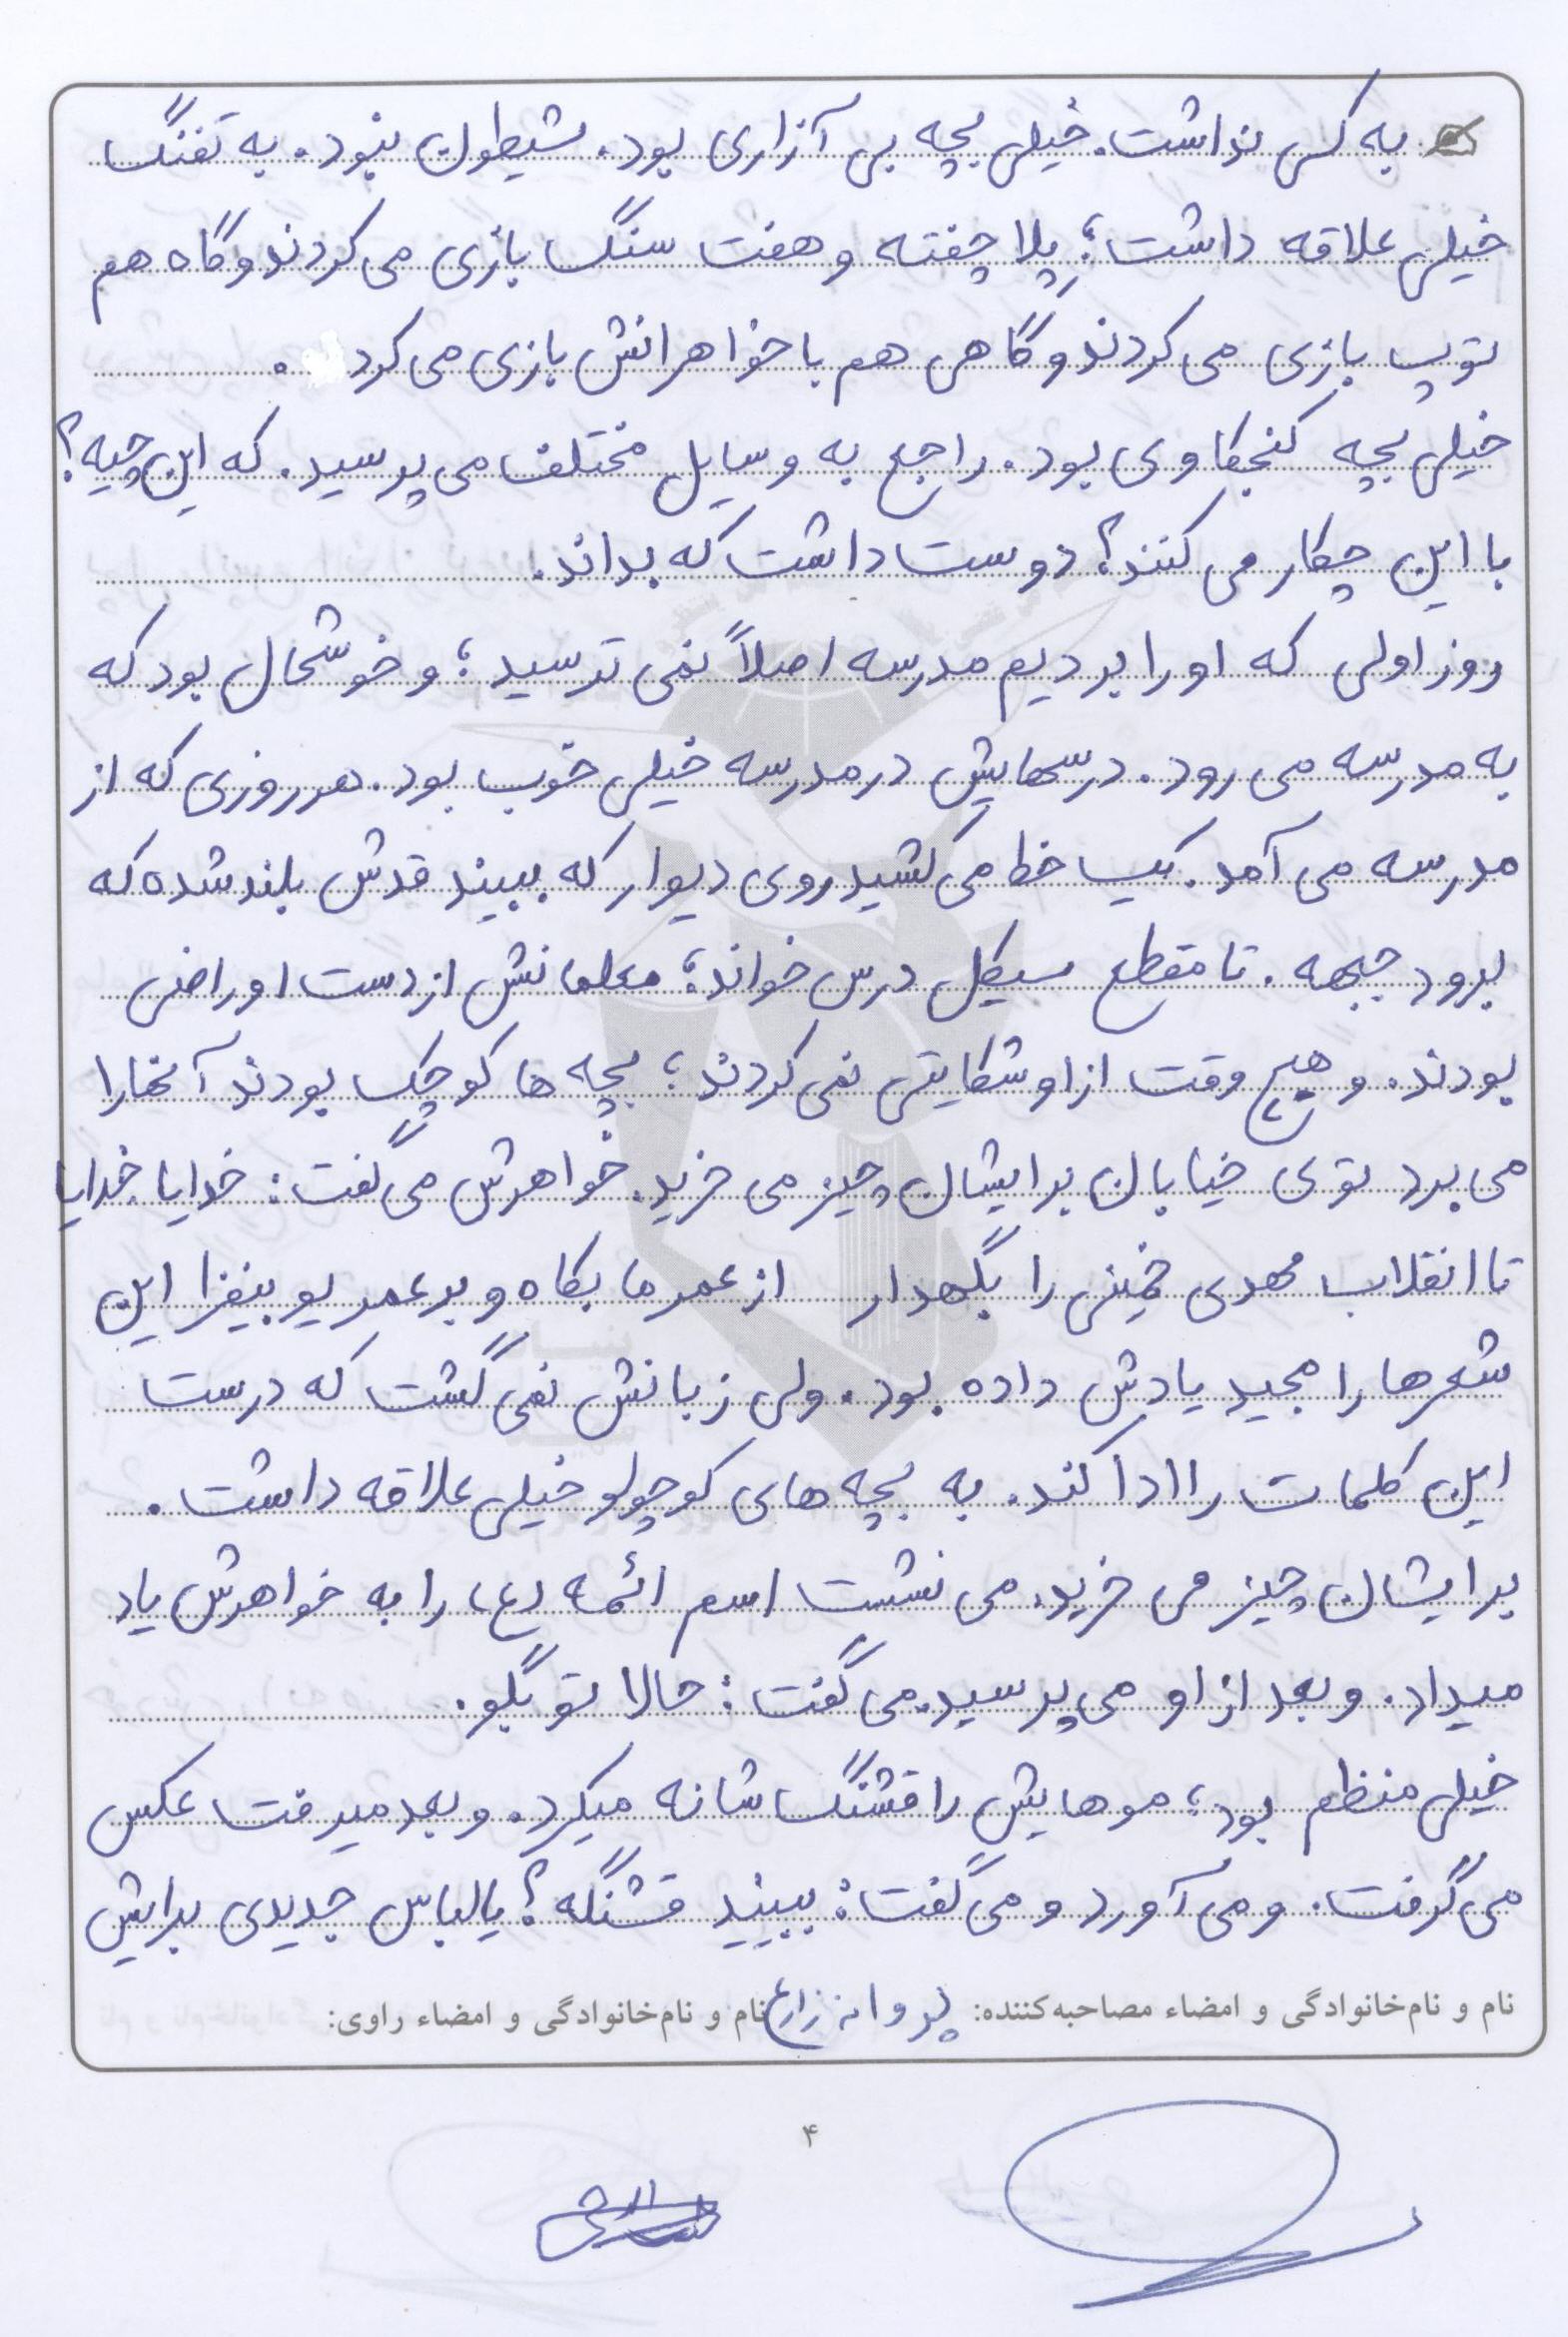 به کس نداشت. خیلی بچه بی آزاری بود. شیطون نبود. به تفنگ
خیلی علاقه داشت؛ پلا چفته و هفت سنگ بازی می کردند و گاه هم
توپ بازی می کردند و گاهی هم با خواهرانش بازی می کرد .
خیلی بچه کنجکاوی بود. راجع به وسایل مختلف می پرسید. که این چیه؟
با این چکار می کنند؟ دوست داشت که بداند.
روز اولی که او را بردیم مدرسه اصلاً نمی ترسید؛ و خوشحال بود که
به مدرسه می رود. درسهایش در مدرسه خیلی خوب بود. هر روزی که از
مدرسه می آمد. یک خط می کشید روی دیوار که ببیند قدش بلند شده که
برود جبهه. تا مقطع سیکل درس خواند؛ معلمانش از دست او راضی
بودند. و هیچ وقت از او شکایتی نمی کردند؛ بچه ها کوچک بودند آنها را
می برد توی خیابان برایشان چیز می خرید. خواهرش می گفت: خدایا خدایا
تا انقلاب مهدی خمینی را بگهدار از عمر ما بکاه و بر عمر یو بیفزا این
شعرها را مجید یادش داده بود. ولی زبانش نمی گشت که درست
این کلمات را ادا کند. به بچه های کوچولو خیلی علاقه داشت.
برایشان چیز می خرید. می نشست اسم ائمه (ع) را به خواهرش یاد
میداد. و بعد از او می پرسید. می گفت: حالا تو بگو.
خیلی منظم بود؛ موهایش را قشنگ شانه میکرد. و بعد میرفت عکس
می گرفت. و می آورد و می گفت: ببینید قشنگه؟ یا لباس جدیدی برایش
نام و نام‌خانوادگی و امضاء مصاحبه‌کننده: پروانه زارع نام و نام‌خانوادگی و امضاء راوی:
۴